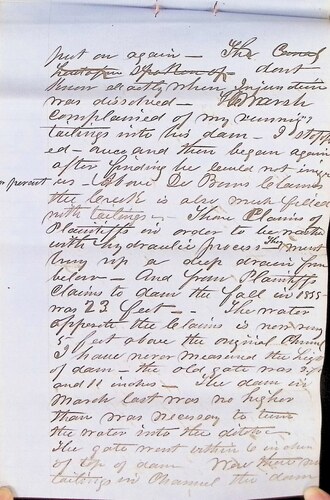 put on again — The Cons
dont
know exactly when Injunction
was dissolved — Marsh
complained of my running
tailings into his dam — I stopp
ed — once and then began again
after finding he could not inju
us — Above De Bons Claims
the Creek is also much filled
with tailings — Those Claims of
Plaintiffs in order to be worked
with hydraulic process They must
bring up a deep drain from
below — And from Plaintiffs
Claims to dam the fall in 1855
was 23 feet — The water
opposite the Claims is now
5 feet above the original Channel
I have never measured the high
of dam — the old gate was
and 11 inches — The dam in
March last was no higher
than was necessary to turn
the water into the ditch
The gate went within 6 inches
of top of dam Were there no
tailings in Channel the dam